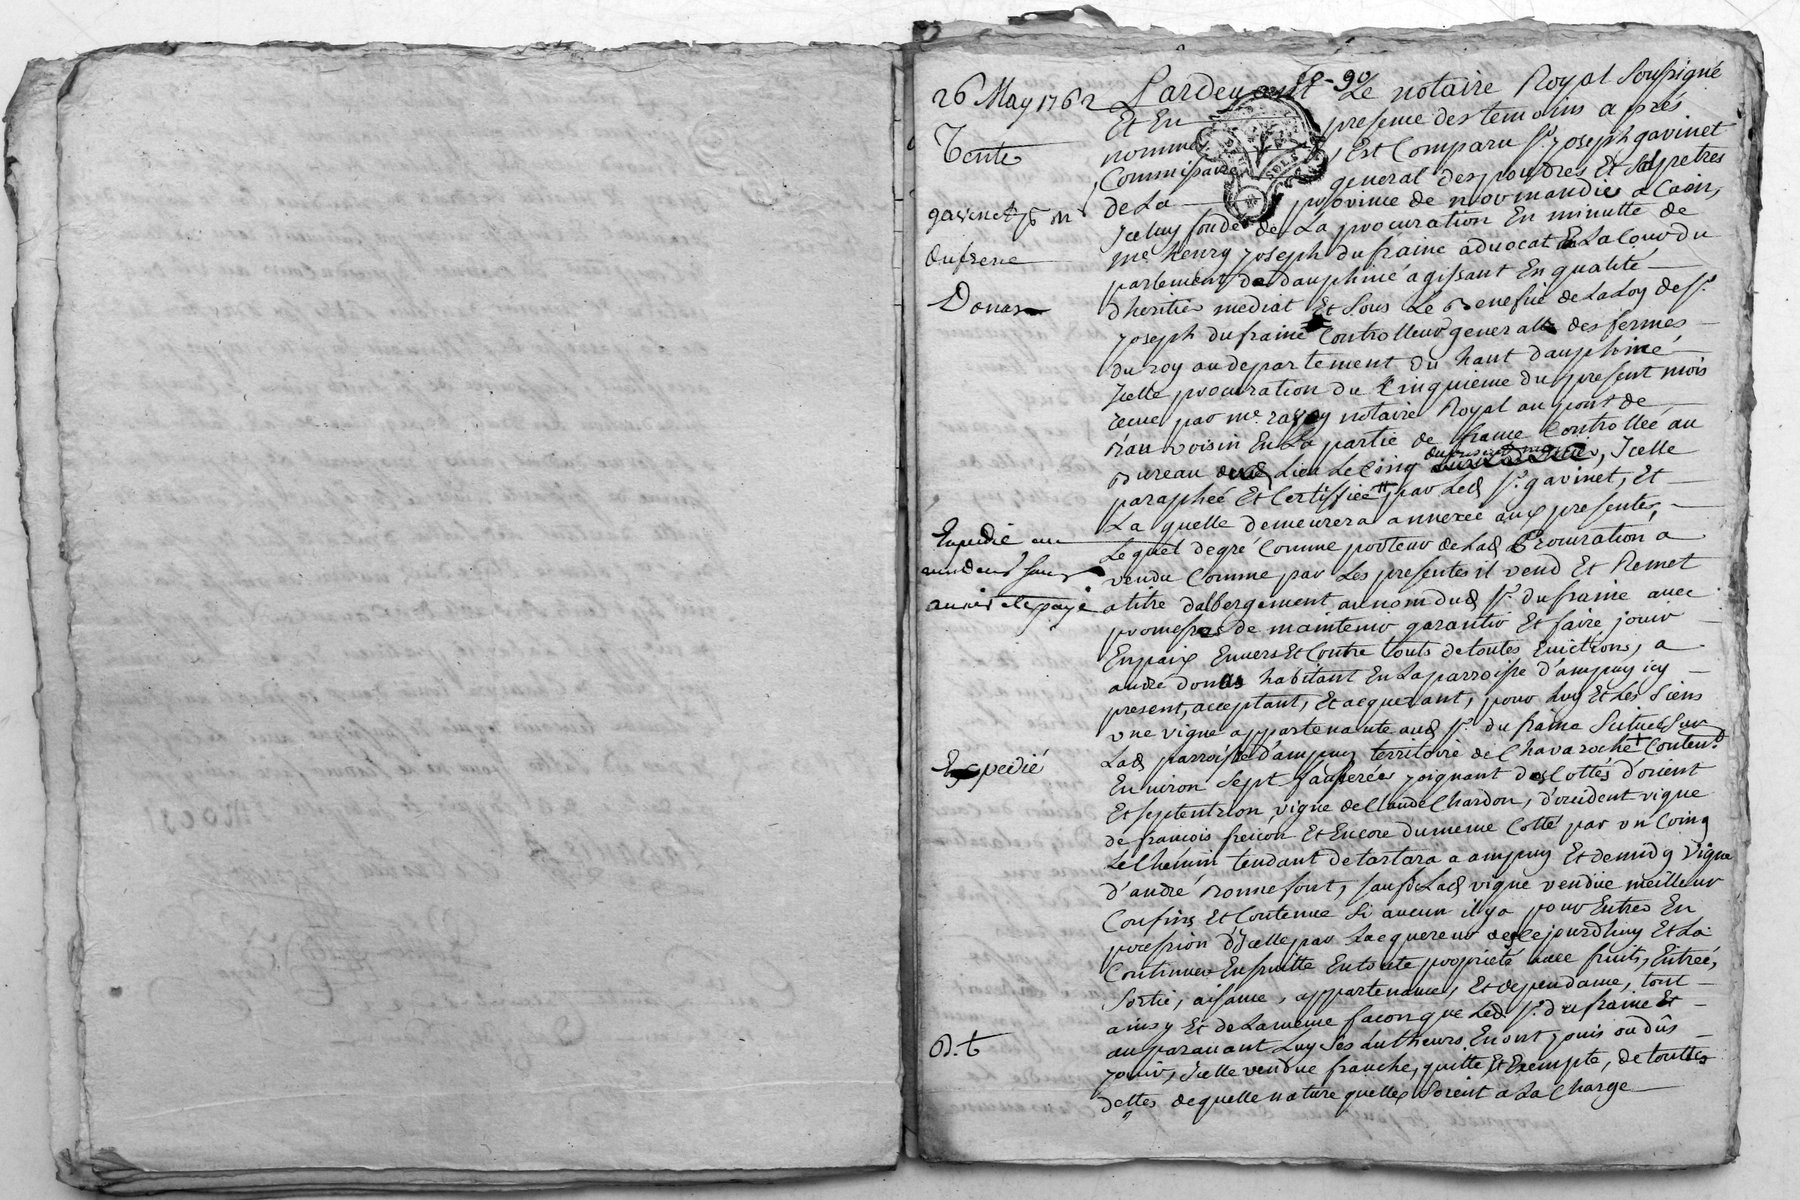 26 May 1762
Vente
gavinet p̄ m
dufresne
Donas
Expedié au
vendeur sans
avoir ete payé
Expedié
d.t
Pardevant Le notaire Royal soussigné
Et En presence des temoins aprés
nommes, Est Comparu sr. joseph gavinet
Commissaire general des poudres Et salpetres
de La province de normandie a Caen,
Iceluy fondé de La procuration En minutte de
me henry joseph dufraine advocat En La Cour du
parlement de dauphiné agissant En qualité
dheritier mediat Et sous Le Benefice de La Loy de sr.
joseph dufraine Controlleur general des fermes
du roy au departement du haut dauphiné
Icelle procuration du Cinquieme du present mois
receue par me. notaire Royal au pont de
Beauvoisin En La partie de france Controllée au
Bureau dud Lieu Le Cinq du present mois, Icelle
paraphée Et Certiffiée par Led sr. gavinet, Et
La quelle demeurera annexée aux presentes,
Lequel de gré Comme porteur de Lad Procuration a
vendu Comme par Les presentes il vend Et Remet
a titre dalbergement au nom dud sr. dufraine avec
promesses de maintenir garantir Et faire jouir
En paix Envers Et Contre touts de toutes Evictions, a
andré donas habitant En La parroisse d'ampuy icy
present, acceptant, Et acquerant, pour Luy Et Les siens
une vigne appartenante aud sr. du fraine scituée sur
Lad parroisse d'ampuy territoire de Chavaroche + Conten.t
Environ sept fasserées joignant des Cottés d'orient
Et septentrion vigne de Claude Chardon, d'occident vigne
de francois freicon Et Encore du meme Cotté par un Coing
Le Chemin tendant de tartara a ampuy Et de midy vigne
d'andré Bonnefont, sauf de Lad vigne vendue meilleur
Confins Et Contenue si aucun il y a pour Entrer En
possession d'Icelle par Lacquereur des Ce jourdhuy Et La
Continuer En suitte En toute proprieté avec fruits, Entrée,
sortie, aisance, appartenances, Et dependance, tout
ainsy Et de La meme facon que Led. sr. dufraine Et
auparavant Luy ses autheurs En ont jouis ou dûs
jouir, Icelle vendue franche, quitte, Et Exempte, de touttes
dettes de quelle nature quelles soient a La Charge